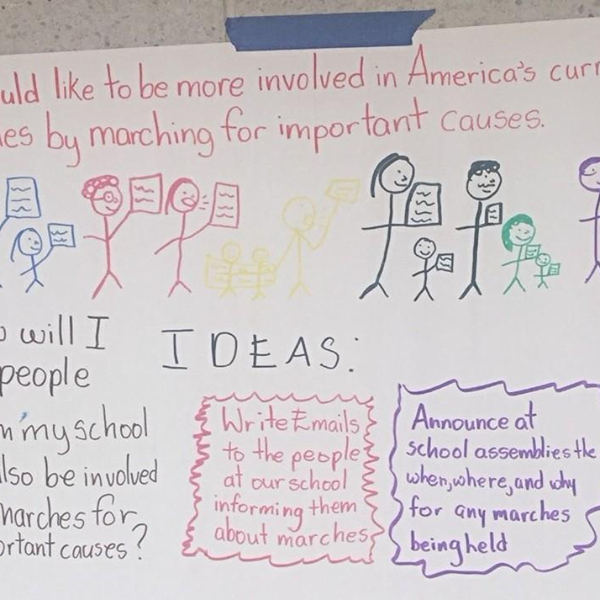 uld like to be more involved in America's curr
es by marching for important causes.
o will I
people
n my school
lso be involved
marches for
rtant causes?
IDEAS:
Write Emails
to the people
at our school
informing them
about marches
Announce at
school assemblies the
when, where, and why
for any marches
being held